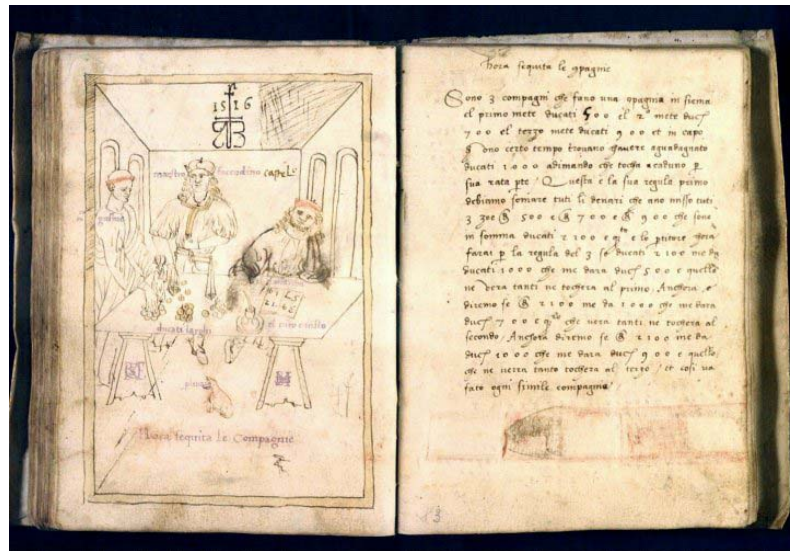 1516
maestro
ducati larghi
Hora sequita le Compagnie
hora sequita le 9pagnie
Sono 3 compagni che fano una 9pagnia insiema
el primo mete ducati 500 el 2° mete duc
700 el terzo mete ducati 900 et in capo
Sono certo tempo trovano havere aguadagnato
ducati 1000 adimando che tocha acaduno p
sua rata pte / Questa e la sua regula primo
debiamo somare tuti li denari che ano misso tuti
3 500 e 700 e 900 che sono
in somma ducati 2100 e lo ptitore hora
farai p la regula del 3 se ducati 2100 me da
ducati 1000 che me dara duc 500 e quello
ne vera tanti ne tochera al primo Anchora
diremo se 2100 me da 1000 che me dara
duc 700 e che vera tanti ne tochera al
secondo / Anchora diremo se 2100 me da
duc 1000 che me dara duc 900 e quello
che ne verra tanto tochera al terzo / et cosi va
fato ogni simile compagnia